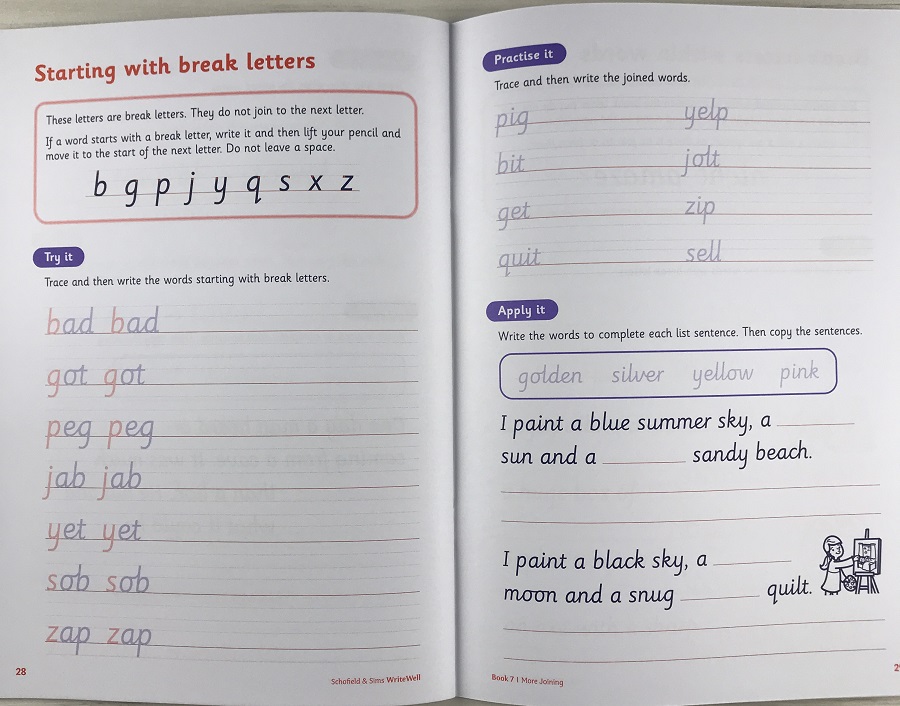 Starting with break letters
These letters are break letters. They do not join to the next letter.
If a word starts with a break letter, write it and then lift your pencil and
move it to the start of the next letter. Do not leave a space.
b g p j y q s x z
Try it
Trace and then write the words starting with break letters.
bad bad
got got
peg peg
jab jab
yet yet
sob sob
zap zap
28
Schofield & Sims WriteWell
Practise it
Trace and then write the joined words.
pig yelp
bit jolt
get zip
quit sell
Apply it
Write the words to complete each list sentence. Then copy the sentences.
golden silver yellow pink
I paint a blue summer sky, a
sun and a sandy beach.
I paint a black sky, a
moon and a snug quilt.
Book 7 | More Joining